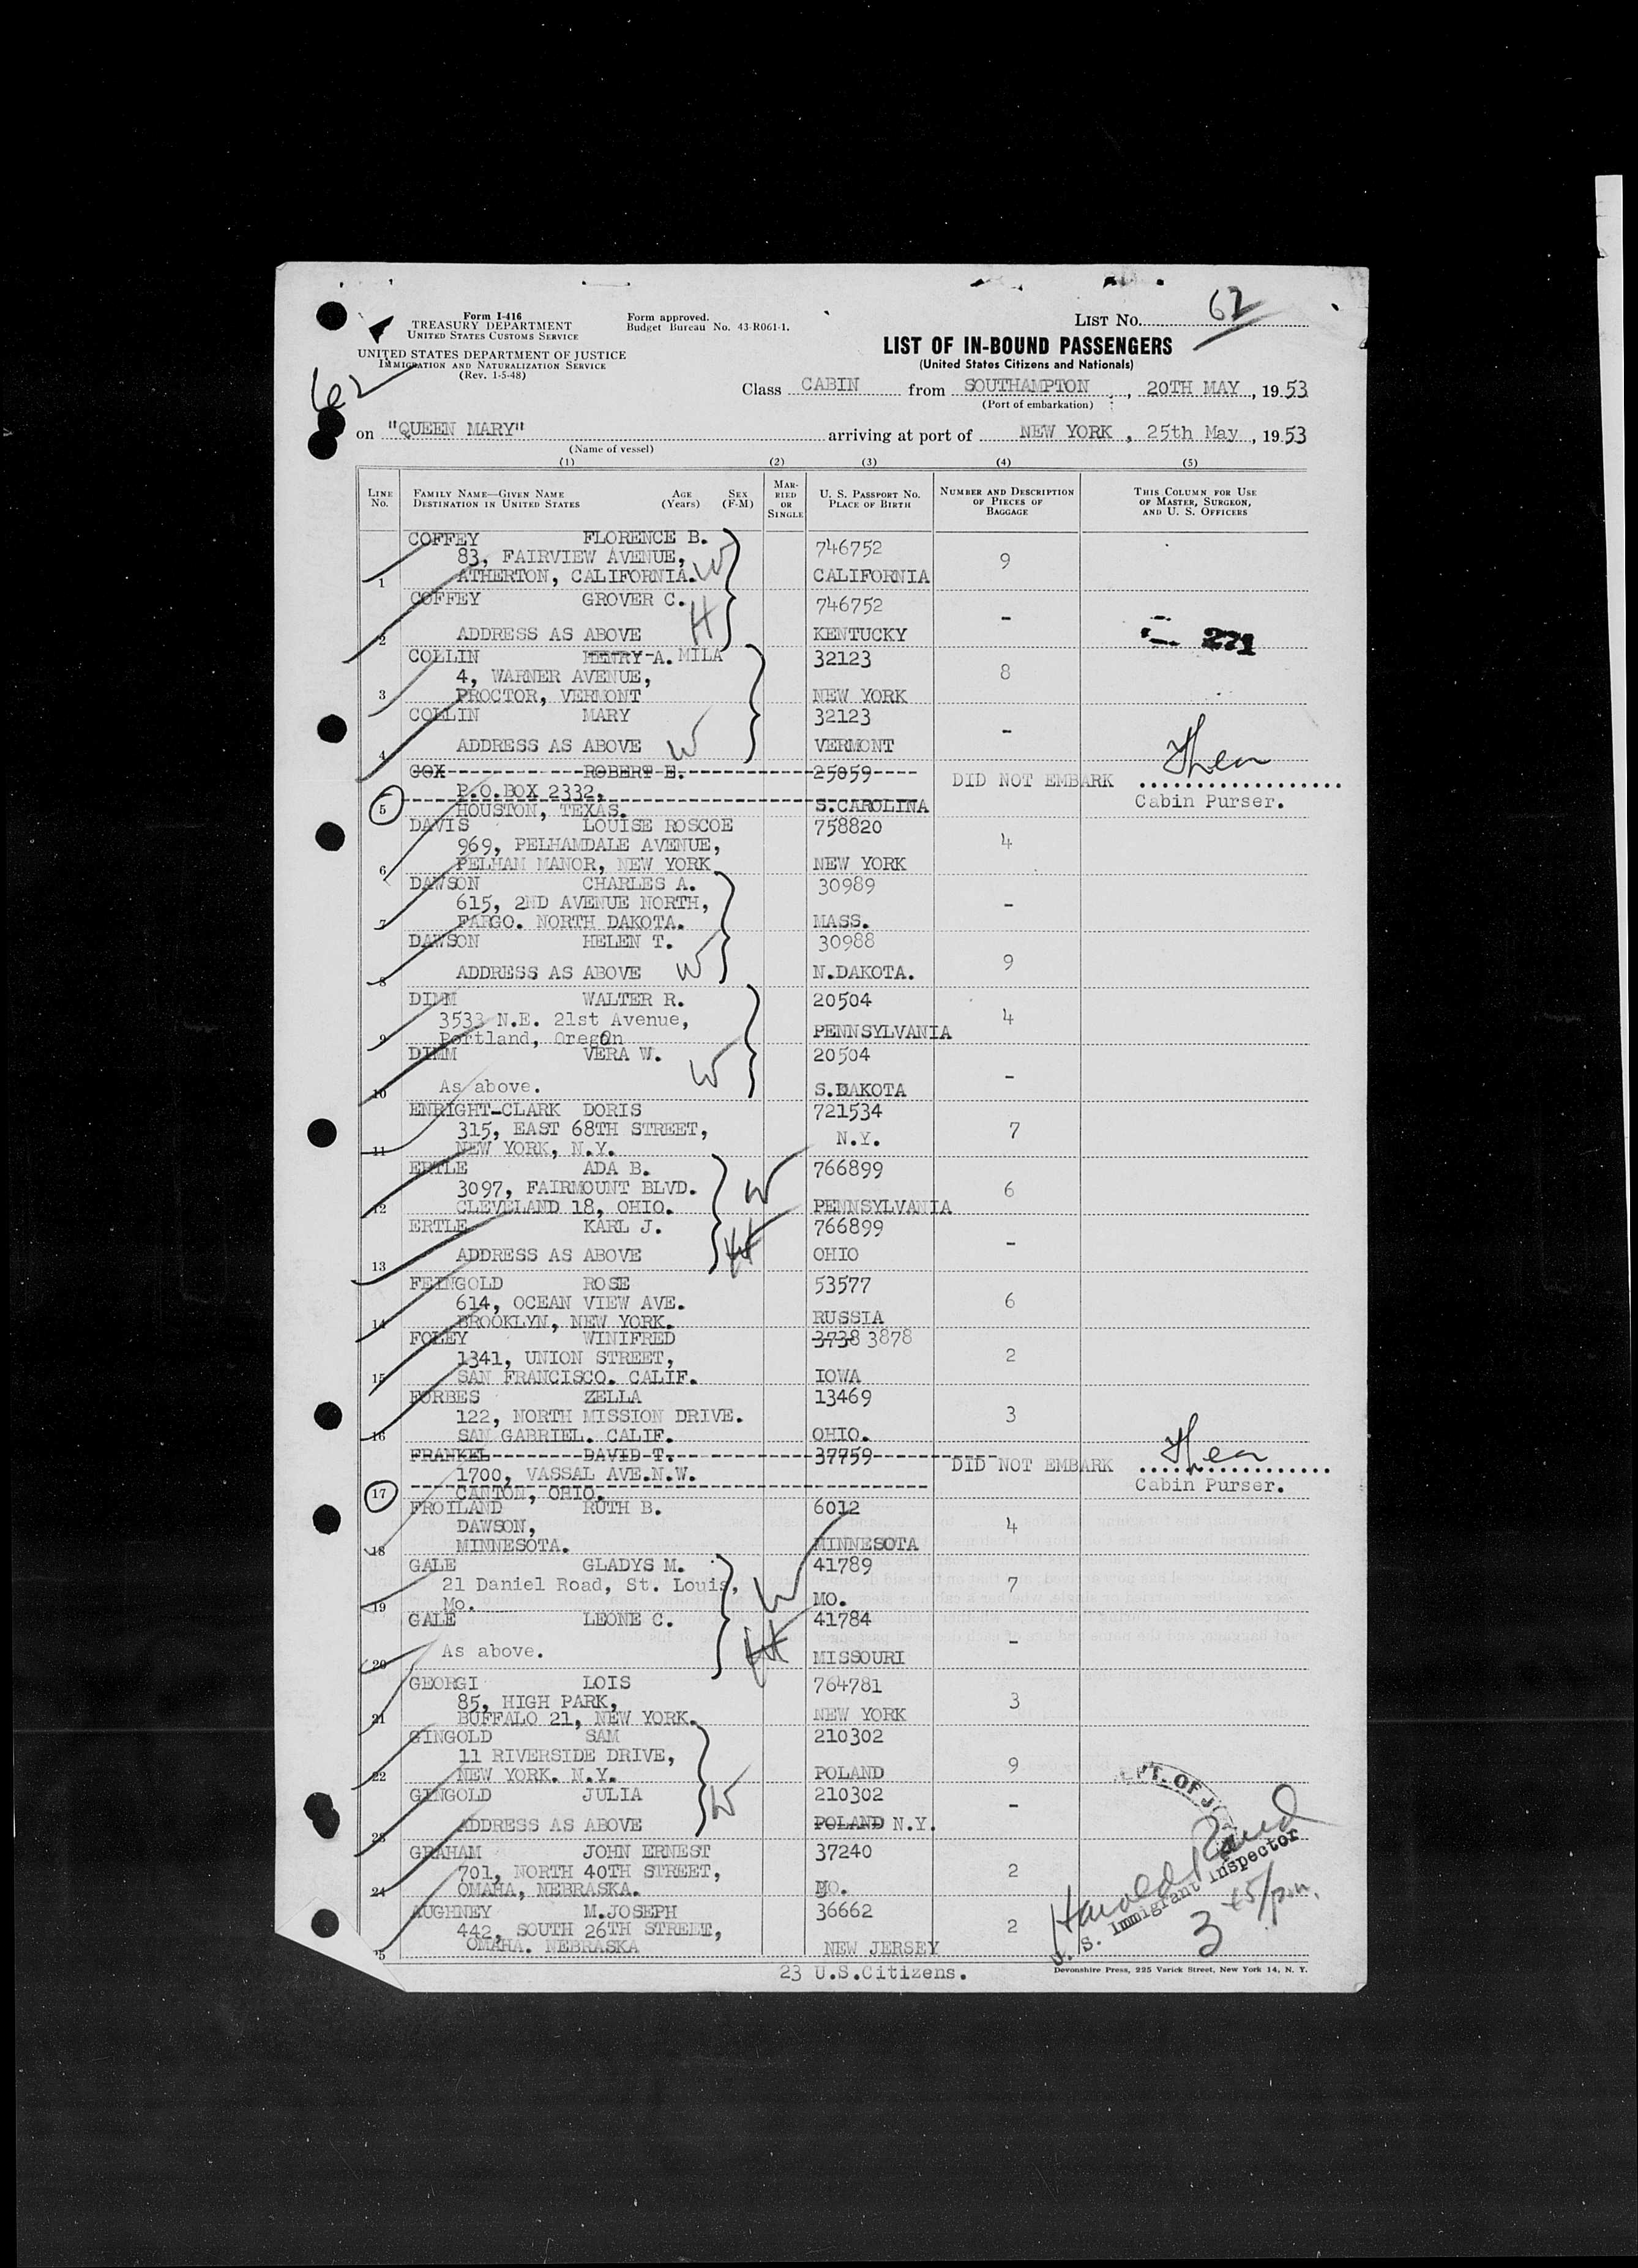 Form I-416
TREASURY DEPARTMENT
UNITED STATES CUSTOMS SERVICE
UNITED STATES DEPARTMENT OF JUSTICE
IMMIGRATION AND NATURALIZATION SERVICE
(Rev. 1-5-48)
Form approved.
Budget Bureau No. 43-R061-1.
LIST NO. 62
62
LIST OF IN-BOUND PASSENGERS
(United States Citizens and Nationals)
Class CABIN from SOUTHAMPTON, 20TH MAY, 1953
(Port of embarkation)
on "QUEEN MARY" arriving at port of NEW YORK, 25th May, 1953
(Name of vessel)
(1) (2) (3) (4) (5)
LINE NO.
FAMILY NAME—GIVEN NAME
DESTINATION IN UNITED STATES
AGE (Years)
SEX (F-M)
MARRIED OR SINGLE
U. S. PASSPORT NO.
PLACE OF BIRTH
NUMBER AND DESCRIPTION OF PIECES OF BAGGAGE
THIS COLUMN FOR USE OF MASTER, SURGEON, AND U. S. OFFICERS
COFFEY FLORENCE B. 746752
83, FAIRVIEW AVENUE, 9
1 ATHERTON, CALIFORNIA. W CALIFORNIA
COFFEY GROVER C. H 746752 -
2 ADDRESS AS ABOVE KENTUCKY 271
COLLIN HENRY A. MILA 32123
4, WARNER AVENUE, 8
3 PROCTOR, VERMONT NEW YORK
COLLIN MARY 32123 -
4 ADDRESS AS ABOVE W VERMONT
COX ROBERT E. 25059 DID NOT EMBARK
P.O.BOX 2332,
5 HOUSTON, TEXAS. S.CAROLINA Cabin Purser.
DAVIS LOUISE ROSCOE 758820
969, PELHAMDALE AVENUE, 4
6 PELHAM MANOR, NEW YORK NEW YORK
DAWSON CHARLES A. 30989
615, 2ND AVENUE NORTH, -
7 FARGO. NORTH DAKOTA. MASS.
DAWSON HELEN T. 30988 9
8 ADDRESS AS ABOVE W N.DAKOTA.
DIMM WALTER R. 20504
3533 N.E. 21st Avenue, 4
9 Portland, Oregon PENNSYLVANIA
DIMM VERA W. 20504 -
10 As above. W S.DAKOTA
ENRIGHT-CLARK DORIS 721534
315, EAST 68TH STREET, 7
11 NEW YORK, N.Y. N.Y.
ERTLE ADA B. 766899
3097, FAIRMOUNT BLVD. W 6
12 CLEVELAND 18, OHIO. PENNSYLVANIA
ERTLE KARL J. 766899 -
13 ADDRESS AS ABOVE H OHIO
FEINGOLD ROSE 53577
614, OCEAN VIEW AVE. 6
14 BROOKLYN, NEW YORK. RUSSIA
FOLEY WINIFRED 3738 3878
1341, UNION STREET, 2
15 SAN FRANCISCO. CALIF. IOWA
FORBES ZELLA 13469
122, NORTH MISSION DRIVE. 3
16 SAN GABRIEL. CALIF. OHIO.
FRANKEL DAVID T. 37759 DID NOT EMBARK
1700, VASSAL AVE.N.W.
17 CANTON, OHIO. Cabin Purser.
FROILAND RUTH B. 6012
DAWSON, 4
18 MINNESOTA. MINNESOTA
GALE GLADYS M. 41789
21 Daniel Road, St. Louis, W 7
19 Mo. MO.
GALE LEONE C. 41784 -
20 As above. H MISSOURI
GEORGI LOIS 764781
85, HIGH PARK, 3
21 BUFFALO 21, NEW YORK. NEW YORK
GINGOLD SAM 210302
11 RIVERSIDE DRIVE, 9
22 NEW YORK. N.Y. POLAND
GINGOLD JULIA 210302 -
23 ADDRESS AS ABOVE W POLAND N.Y.
GRAHAM JOHN ERNEST 37240
701, NORTH 40TH STREET, 2
24 OMAHA, NEBRASKA. MO.
AUGHNEY M.JOSEPH 36662
442, SOUTH 26TH STREET, 2
OMAHA. NEBRASKA NEW JERSEY
U. S. Immigrant Inspector
3 45/p.m.
23 U.S.Citizens.
Devonshire Press, 225 Varick Street, New York 14, N. Y.